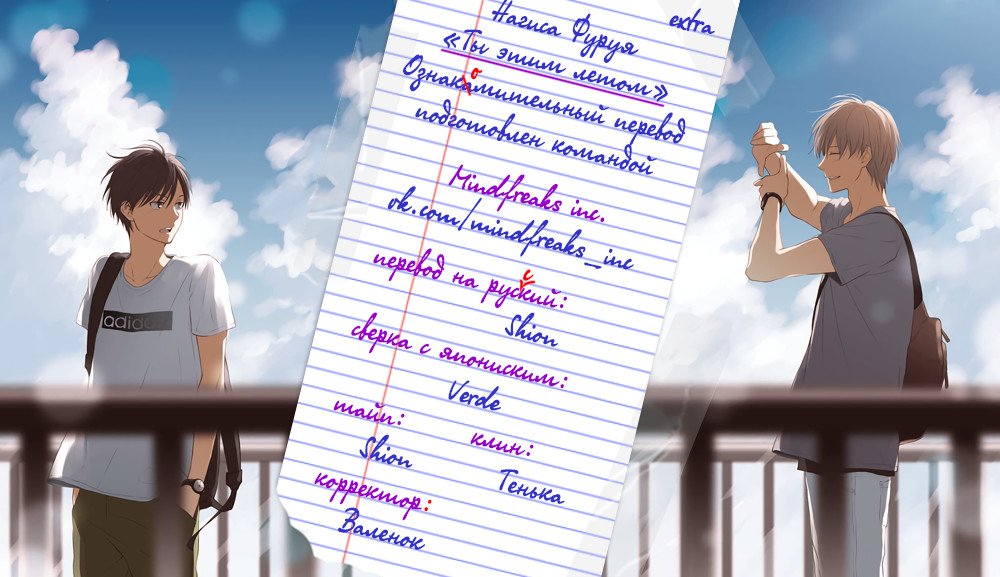 extra
Нагиса Фуруя
«Ты этим летом»
о
Ознакамительный перевод
подготовлен командой
Mindfreaks inc.
vk.com/mindfreaks_inc
с
перевод на руский:
Shion
сверка с япониским:
Verde
тайп:
клин:
Shion
Тенька
корректор:
Валенок
adidas